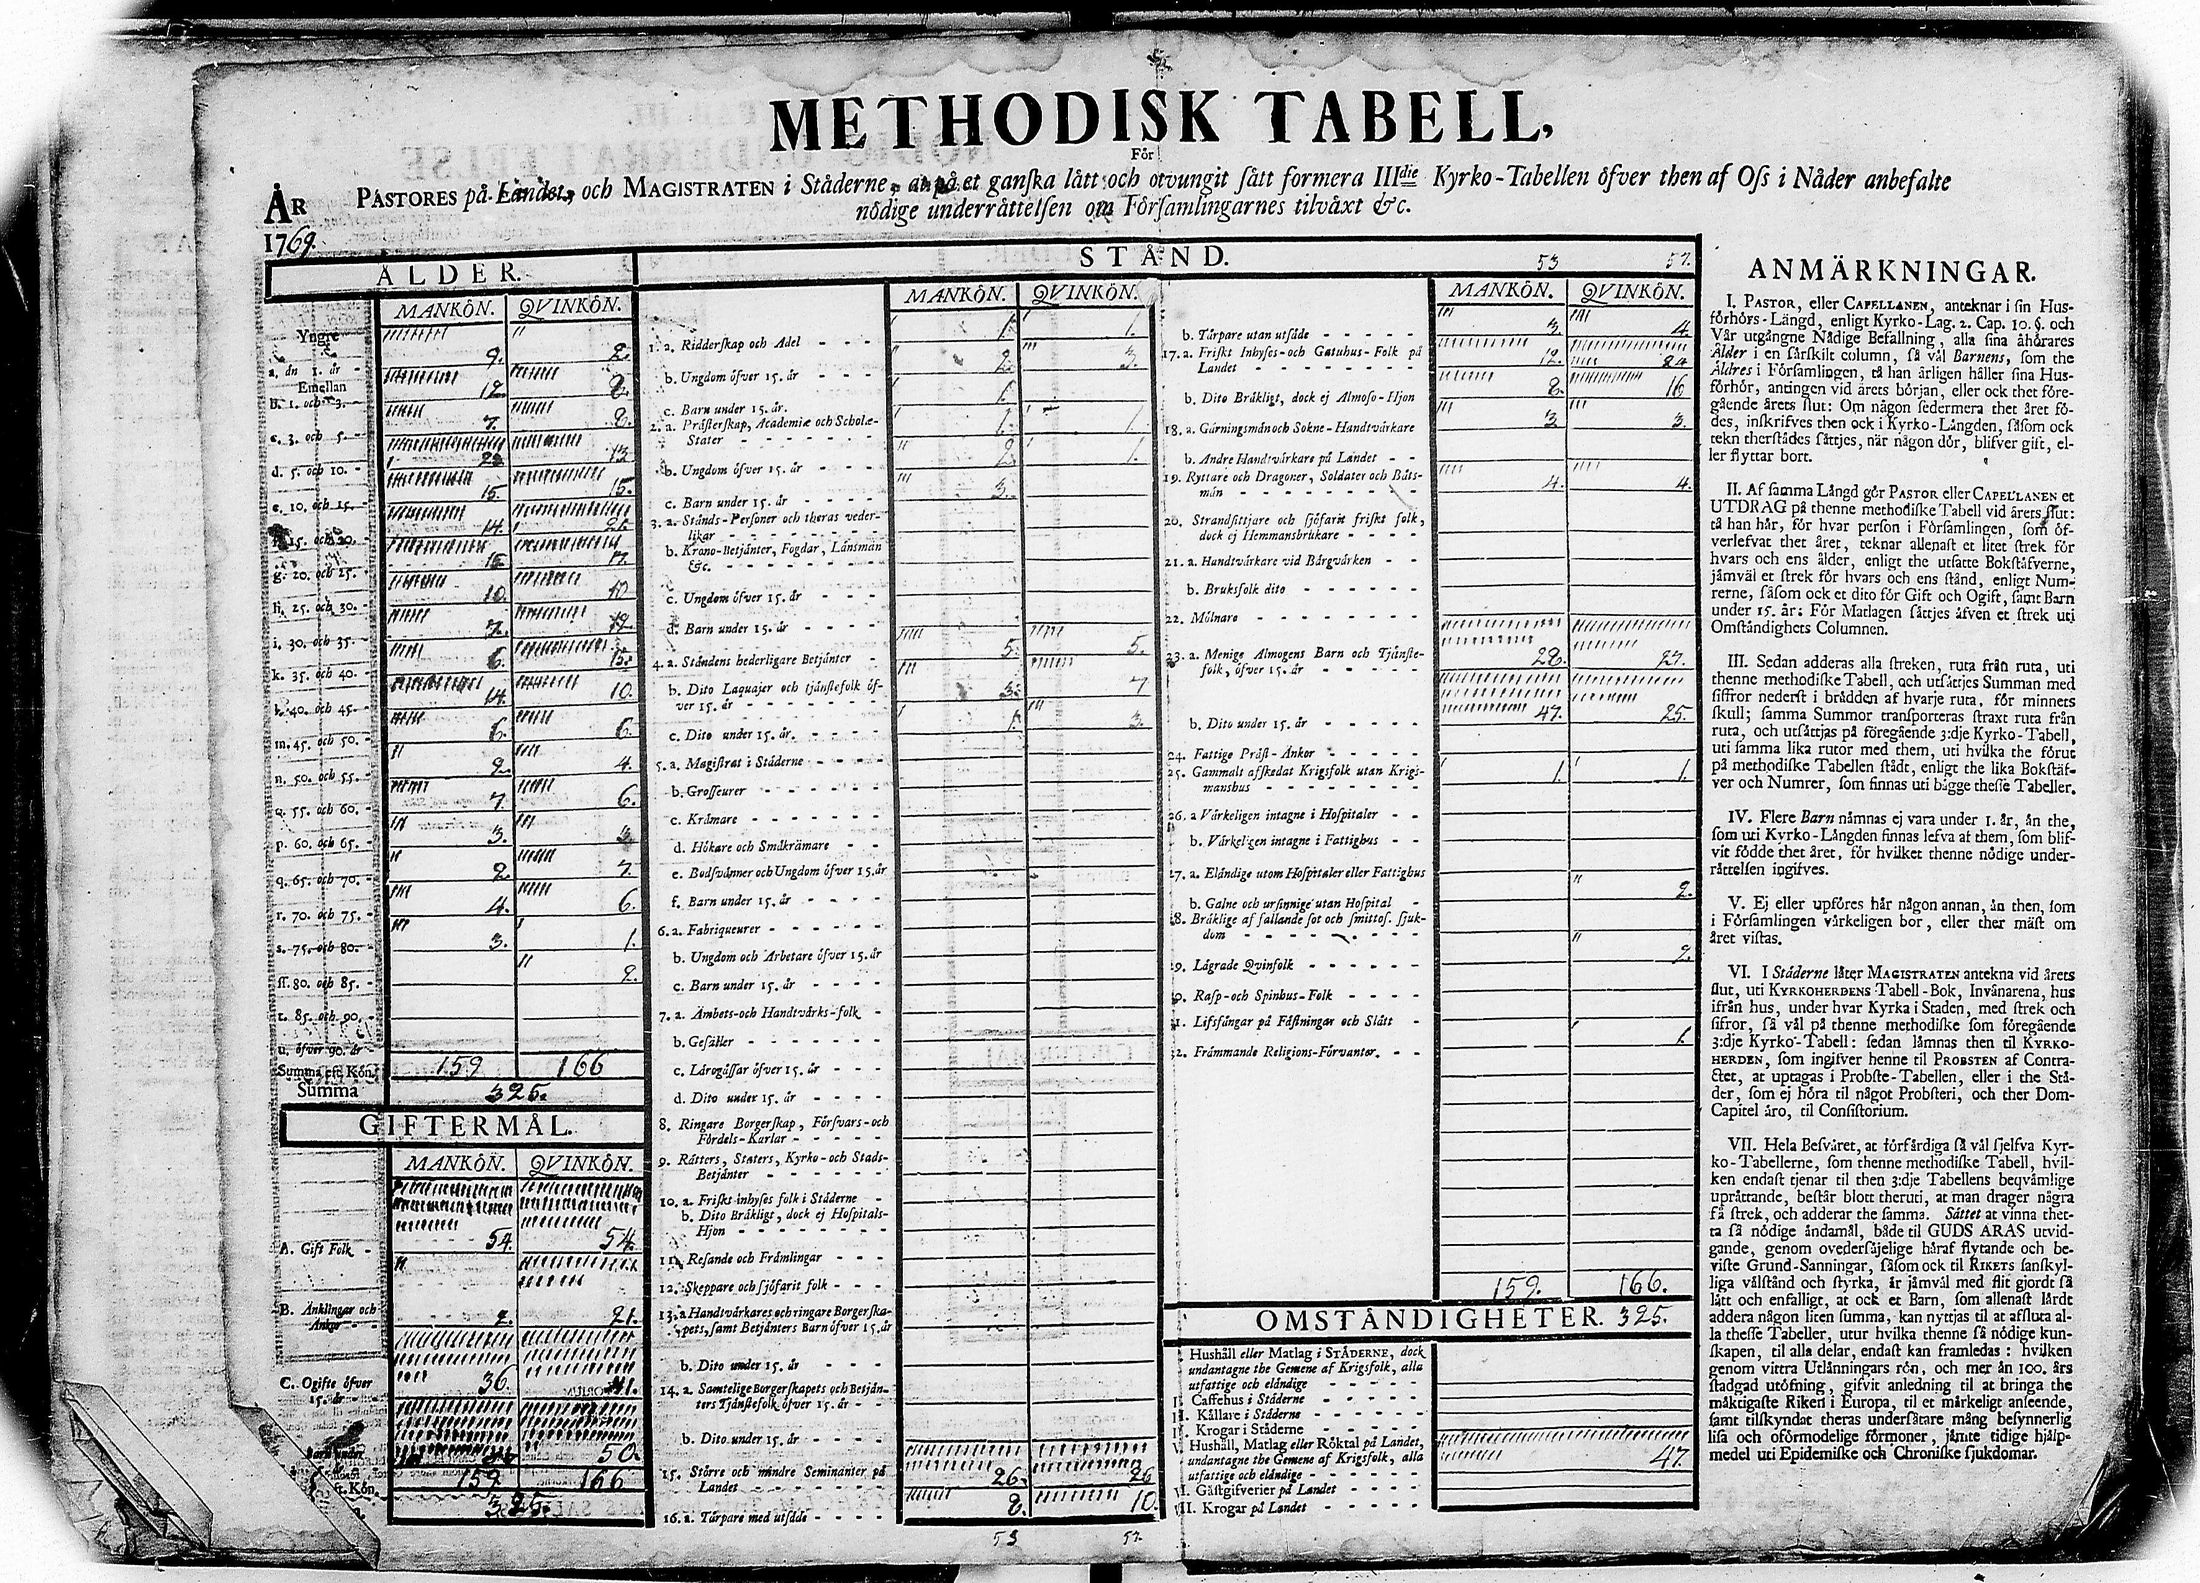 METHODISK TABELL,
För
PASTORES på Landet, och MAGISTRATEN i Ståderne, at på et ganſka lått och otvungit ſått formera IIIdie Kyrko-Tabellen öfver then af Oſs i Nåder anbefalte
nödige underråttelſen om Förſamlingarnes tilvåxt &c.
ÅR
1769.
ÅLDER.
MANKÖN. QVINKÖN.
Yngre
a. ån 1. år - 9. 8.
Emellan
b. 1. och 3. - 12. 8.
c. 3. och 5. - 7. 8.
d. 5. och 10. - 13
e. 10. och 15. - 15. 15.
15. och 20. - 14. 21.
g. 20. och 25. - 17.
h. 25. och 30. - 10. 10
i. 30. och 35. - 7.
k. 35. och 40. - 6. 15.
l. 40. och 45. - 14. 10.
m. 45. och 50. - 6. 6.
n. 50. och 55. - 2. 4.
o. 55. och 60. - 7. 6.
p. 60. och 65. - 3. 3.
q. 65. och 70. - 2. 7.
r. 70. och 75. - 4. 6.
s. 75. och 80. - 3. 1.
ſſ. 80. och 85. - 2.
t. 85. och 90. -
u. öfver 90. år -
Summa eft. Kön. 159 166
Summa 325.
GIFTERMÅL.
MANKÖN. QVINKÖN.
A. Gift Folk - 54. 54.
B. Änklingar och Änkor - - 2. 21.
C. Ogifte öfver 15. år - - 36. 41.
Barn under 50.
Kön. 159 166
325.
STÅND. 53 57.
MANKÖN. QVINKÖN.
1. a. Ridderſkap och Adel - - - 1. 1.
b. Ungdom öfver 15. år - - - - 2. 3.
c. Barn under 15. år. 1.
2. a. Pråſterſkap, Academiæ och Scholæ-
Stater - - - - - - - 1. 1.
b. Ungdom öfver 15. år - - - - 2. 1.
c. Barn under 15. år - - - - - 3.
3. a. Stånds-Perſoner och theras veder-
likar - - - - - - - -
b. Krono-Betjänter, Fogdar, Länsmän
&c. - - - - - - - -
c. Ungdom öfver 15. år - - - -
d. Barn under 15. år - - - -
4. a. Ståndens hederligare Betjänter - 5. 5.
b. Dito Laquajer och tjänſtefolk öf-
ver 15. år - - - - - - - 3. 7
c. Dito under 15. år. - - - - 1. 3.
5. a. Magiſtrat i Ståderne - - - -
b. Groſſeurer - - - - - - -
c. Krämare - - - - - - -
d. Hökare och Småkrämare - -
e. Bodſvänner och Ungdom öfver 15. år
f. Barn under 15. år - - - -
6. a. Fabriqueurer - - - - - -
b. Ungdom och Arbetare öfver 15. år
c. Barn under 15. år - - - -
7. a. Ämbets-och Handtvärks-folk -
b. Geſäller - - - - - - - -
c. Lärogåſſar öfver 15. år - - -
d. Dito under 15. år - - - -
8. Ringare Borgerſkap, Förſvars-och
Fördels-Karlar - - - - -
9. Råtters, Staters, Kyrko-och Stads-
Betjänter - - - - - - -
10. a. Friſkt inhyſes folk i Ståderne -
b. Dito Bräkligt, dock ej Hoſpitals-
Hjon - - - - - - - -
11. Reſande och Främlingar - - -
12. Skeppare och ſjöfarit folk - - -
13. a Handtvärkares och ringare Borgerſka-
pets, ſamt Betjänters Barn öfver 15. år
b. Dito under 15. år - - - -
14. a. Samtelige Borgerſkapets och Betjän-
ters Tjänſtefolk öfver 15. år - -
b. Dito under 15. år - - - -
15. Större och mindre Seminanter på
Landet - - - - - - - 26. 26
16. a. Tårpare med utſäde - - - - 8. 10.
53 57.
MANKÖN. QVINKÖN.
b. Tårpare utan utſäde - - - - - 3. 4.
17. a. Friſkt Inhyſes-och Gatuhus-Folk på
Landet - - - - - - - 12. 24
b. Dito Bräkligt, dock ej Almoſo-Hjon 8. 16
18. a. Gärningsmän och Sokne-Handtvärkare 3. 3.
b. Andre Handtvärkare på Landet - -
19. Ryttare och Dragoner, Soldater och Båts-
män - - - - - - - - 4. 4.
20. Strandſittjare och ſjöfarit friſkt folk,
dock ej Hemmansbrukare - - - -
21. a. Handtvärkare vid Bärgvärken - -
b. Bruksfolk dito - - - - - -
22. Mölnare - - - - - - - -
23. a. Menige Almogens Barn och Tjänſte-
folk, öfver 15. år - - - - - 28. 27.
b. Dito under 15. år - - - - - 47. 25.
24. Fattige Präſt-Änkor - - - - -
25. Gammalt afſkedat Krigsfolk utan Krigs-
manshus - - - - - - - 1. 1.
26. a Värkeligen intagne i Hoſpitaler - -
b. Värkeligen intagne i Fattighus - -
27. a. Elåndige utom Hoſpitaler eller Fattighus 2.
b. Galne och urſinnige utan Hoſpital -
28. Bräklige af fallande ſot och ſmittoſ. ſjuk-
dom - - - - - - - 2.
29. Lägrade Qvinfolk - - - - - -
30. Raſp-och Spinhus-Folk - - - -
31. Lifsfångar på Fäſtningar och Slått - 1.
32. Främmande Religions-Förvanter. - -
159. 166.
OMSTÅNDIGHETER. 325.
Hushåll eller Matlag i STÅDERNE, dock
undantagne the Gemene af Krigsfolk, alla
utfattige och elåndige - - - - -
Caffehus i Ståderne - - - -
Kållare i Ståderne - - - - -
Krogar i Ståderne - - - - -
V Hushåll, Matlag eller Röktal på Landet,
undantagne the Gemene af Krigsfolk, alla
utfattige och elåndige - - - - - 47.
VI. Gäſtgifverier på Landet - - - -
VII. Krogar på Landet - - - - -
ANMÄRKNINGAR.
I. PASTOR, eller CAPELLANEN, anteknar i ſin Hus-
förhörs-Längd, enligt Kyrko-Lag. 2. Cap. 10. §. och
Vår utgångne Nådige Befallning, alla ſina åhörares
Ålder i en ſärſkilt column, ſå vål Barnens, ſom the
Äldres i Förſamlingen, tå han årligen håller ſina Hus-
förhör, antingen vid årets början, eller ock thet före-
gående årets ſlut: Om någon ſedermera thet året fö-
des, inſkrifves then ock i Kyrko-Längden, ſåſom ock
tekn therſtädes ſättjes, når någon dör, blifver gift, el-
ler flyttar bort.
II. Af ſamma Längd gör PASTOR eller CAPELLANEN et
UTDRAG på thenne methodiſke Tabell vid årets ſlut:
tå han här, för hvar perſon i Förſamlingen, ſom öf-
verlefvat thet året, teknar allenaſt et litet ſtrek för
hvars och ens ålder, enligt the utſatte Bokſtäfverne,
jämväl et ſtrek för hvars och ens ſtånd, enligt Num-
rerne, ſåſom ock et dito för Gift och Ogift, ſamt Barn
under 15. år: För Matlagen ſättjes äfven et ſtrek uti
Omſtändighets Columnen.
III. Sedan adderas alla ſtreken, ruta från ruta, uti
thenne methodiſke Tabell, och utſättjes Summan med
ſiffror nederſt i brädden af hvarje ruta, för minnets
ſkull; ſamma Summor tranſporteras ſtraxt ruta från
ruta, och utſättjas på föregående 3:dje Kyrko-Tabell,
uti ſamma lika rutor med them, uti hvilka the förut
på methodiſke Tabellen ſtådt, enligt the lika Bokſtäf-
ver och Numrer, ſom finnas uti bägge theſſe Tabeller.
IV. Flere Barn nämnas ej vara under 1. år, än the,
ſom uti Kyrko-Längden finnas lefva af them, ſom blif-
vit födde thet året, för hvilket thenne nödige under-
rättelſen ingifves.
V. Ej eller upföres här någon annan, än then, ſom
i Förſamlingen värkeligen bor, eller ther mäſt om
året viſtas.
VI. I Ståderne låter MAGISTRATEN antekna vid årets
ſlut, uti KYRKOHERDENS Tabell-Bok, Invånarena, hus
ifrån hus, under hvar Kyrka i Staden, med ſtrek och
ſifror, ſå väl på thenne methodiſke ſom föregående
3:dje Kyrko-Tabell: ſedan lämnas then til KYRKO-
HERDEN, ſom ingifver henne til PROBSTEN af Contra-
ctet, at uptagas i Probſte-Tabellen, eller i the Stå-
der, ſom ej höra til något Probſteri, och ther Dom-
Capitel äro, til Conſiſtorium.
VII. Hela Beſväret, at förfärdiga ſå väl ſjelfva Kyr-
ko-Tabellerne, ſom thenne methodiſke Tabell, hvil-
ken endaſt tjenar til then 3:dje Tabellens beqvämlige
uprättande, beſtår blott theruti, at man drager några
få ſtrek, och adderar the ſamma. Sättet at vinna thet-
ta ſå nödige ändamål, både til GUDS ÄRAS utvid-
gande, genom ovederſäjelige häraf flytande och be-
viſte Grund-Sanningar, ſåſom ock til RIKETS ſanſkyl-
liga välſtånd och ſtyrka, är jämväl med flit gjordt ſå
lätt och enfalligt, at ock et Barn, ſom allenaſt lärdt
addera någon liten ſumma, kan nyttjas til at afſluta al-
la theſſe Tabeller, utur hvilka thenne ſå nödige kun-
ſkapen, til alla delar, endaſt kan framledas: hvilken
genom vittra Utlänningars rön, och mer än 100. års
ſtadgad utöfning, gifvit anledning til at bringa the
mäktigaſte Riken i Europa, til et märkeligt anſeende,
ſamt tilſkyndat theras underſåtare mång beſynnerlig
liſa och oförmodelige förmoner, jämte tidige hjälp-
medel uti Epidemiſke och Chroniſke ſjukdomar.